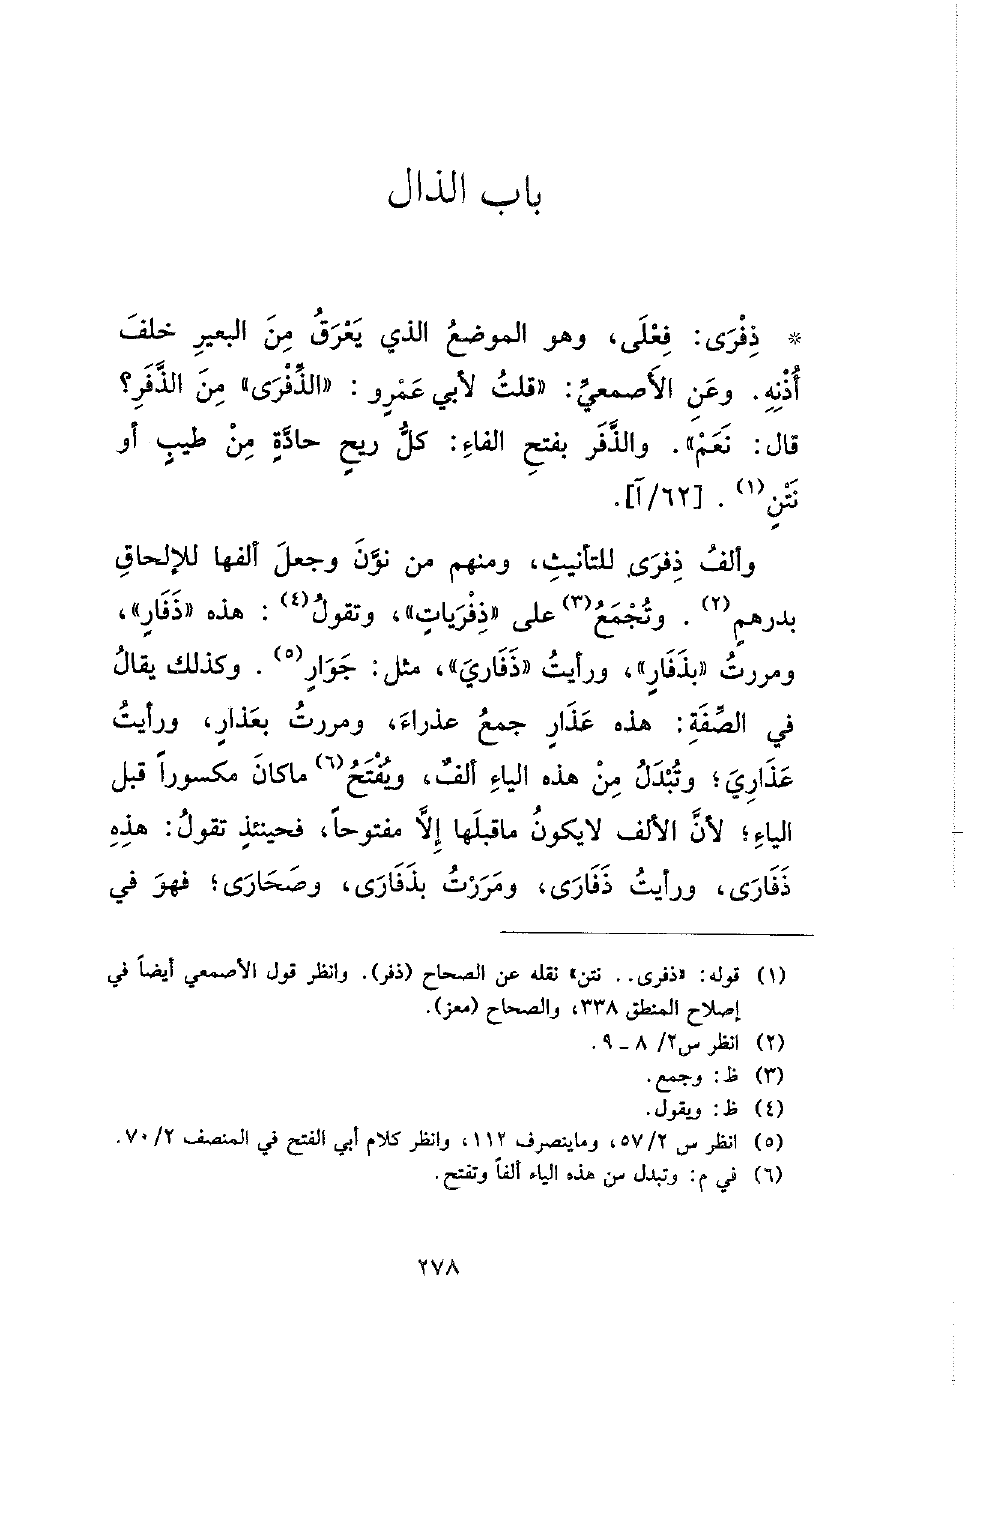 باب الذال
* ذِفْرَى: فِعْلَى، وهو الموضعُ الذي يَعْرَقُ مِنَ البعيرِ خلفَ
أُذْنِهِ. وعَنِ الأَصمعيِّ: «قلتُ لأبي عَمْرٍو : «الذِّفْرَى» مِنَ الذَّفَرِ؟
قال: نَعَمْ». والذَّفَر بفتحِ الفاءِ: كلُّ ريحٍ حادَّةٍ مِنْ طيبٍ أو
نَتْنٍ(١) . [٦٢/آ].
وألفُ ذِفرَى للتأنيثِ، ومنهم من نوَّنَ وجعلَ ألفها للإلحاقِ
بدرهمٍ(٢) . وتُجْمَعُ(٣) على «ذِفْرَياتٍ»، وتقولُ(٤) : هذه «ذَفَارٍ»،
ومررتُ «بذَفَارٍ»، ورأيتُ «ذَفَاريَ»، مثل: جَوَارٍ(٥) . وكذلك يقالُ
في الصِّفَةِ: هذه عَذَارٍ جمعُ عذراءَ، ومررتُ بعَذارٍ، ورأيتُ
عَذَارِيَ؛ وتُبْدَلُ مِنْ هذه الياءِ ألفٌ، ويُفْتَحُ(٦) ماكانَ مكسوراً قبل
الياءِ؛ لأنَّ الألف لايكونُ ماقبلَها إِلَّا مفتوحاً، فحينئذٍ تقولُ: هذِهِ
ذَفَارَى، ورأيتُ ذَفَارَى، ومَرَرْتُ بذَفَارَى، وصَحَارَى؛ فهوَ في
(١) قوله: «ذفرى.. نتن» نقله عن الصحاح (ذفر). وانظر قول الأصمعي أيضاً في
إصلاح المنطق ٣٣٨، والصحاح (معز).
(٢) انظر س٢/ ٨ ـ ٩ .
(٣) ظ: وجمع.
(٤) ظ: ويقول.
(٥) انظر س ٥٧/٢، وماينصرف ١١٢، وانظر كلام أبي الفتح في المنصف ٧٠/٢.
(٦) في م: وتبدل من هذه الياء ألفاً وتفتح.
٢٧٨